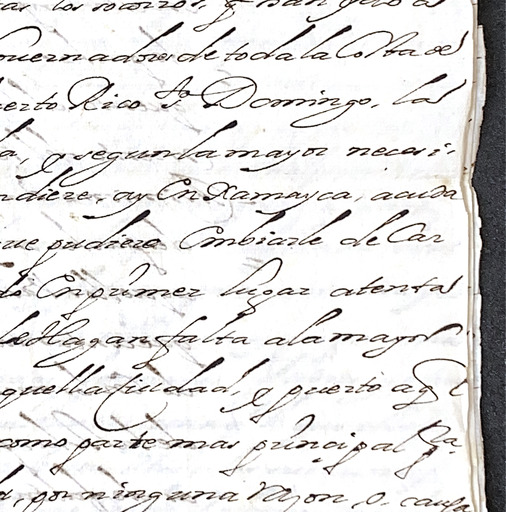 los socorros, q han
Governadores de toda la Costa de
uerto Rico Sto Domingo, las
a, y segun la mayor necesi-
ndiere, oy En Xamayca, acuda
que pudiere Embiarle de Car
En primer lugar atenta
le Hagan falta a la mayor
quella Ciudad, y puerto aql
como parte mas principal
por ninguna razon, o causa